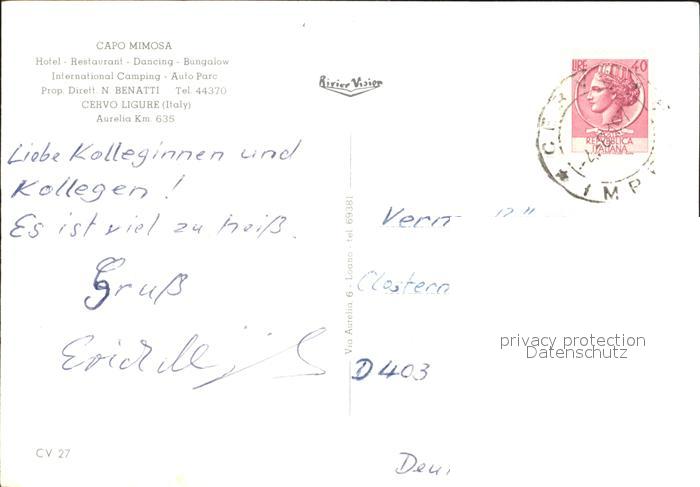 CAPO MIMOSA
Hotel - Restaurant - Dancing - Bungalow
International Camping - Auto Parc
Prop. Dirett. N. BENATTI Tel. 44370
CERVO LIGURE (Italy)
Aurelia Km. 635
Rivier Vision
LIRE 40
REPUBBLICA
ITALIANA
Liebe Kolleginnen und
Kollegen !
Es ist viel zu heiß.
Gruß
Erich
Via Aurelia 6 - Loano - tel. 69381
D 403
privacy protection
Datenschutz
CV 27